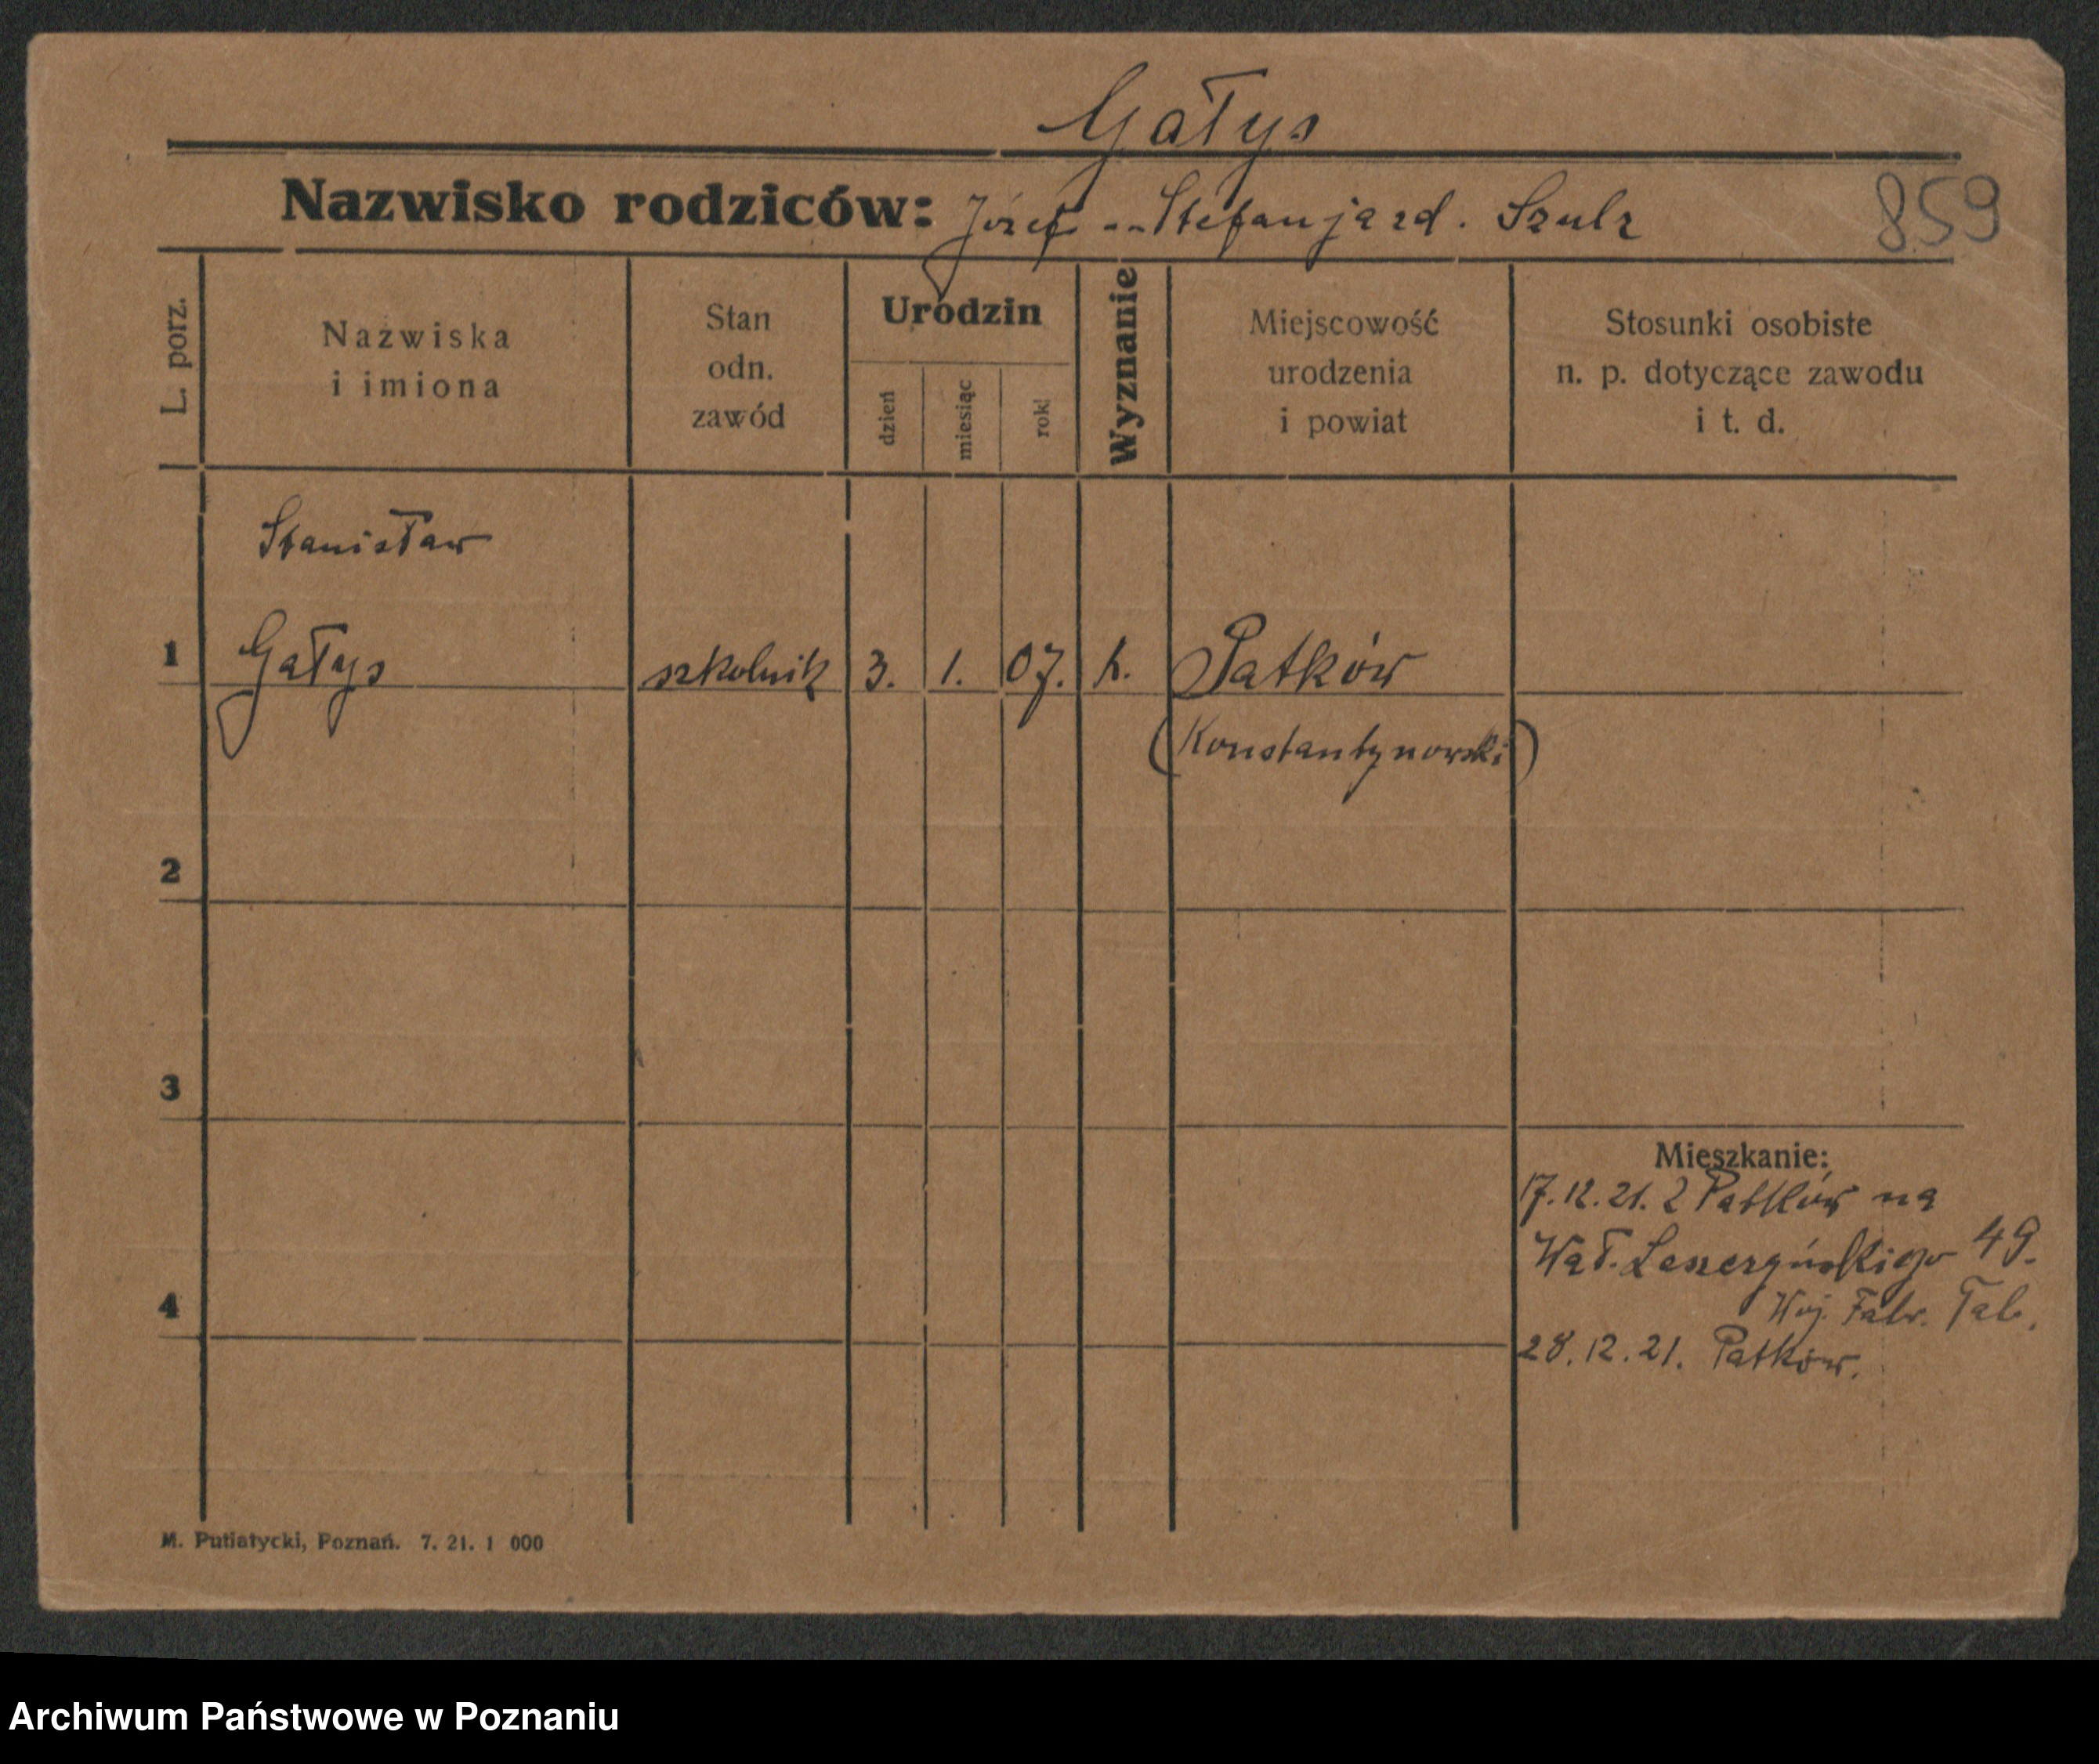 Gałys
Nazwisko rodziców: Józef -- Stefanja zd. Szulz
859
L. porz.
Nazwiska
i imiona
Stan
odn.
zawód
Urodzin
dzień
miesiąc
rok
Wyznanie
Miejscowość
urodzenia
i powiat
Stosunki osobiste
n. p. dotyczące zawodu
i t. d.
Stanisław
1 Gałys szkolnik 3. 1. 07. k. Patków
(Konstantynowski)
2
3
Mieszkanie:
17.12.21. z Patków na
Wał. Leszczyńskiego 49.
Woj. Fabr. Tab.
4
28.12.21. Patków.
M. Putiatycki, Poznań. 7. 21. 1 000
Archiwum Państwowe w Poznaniu